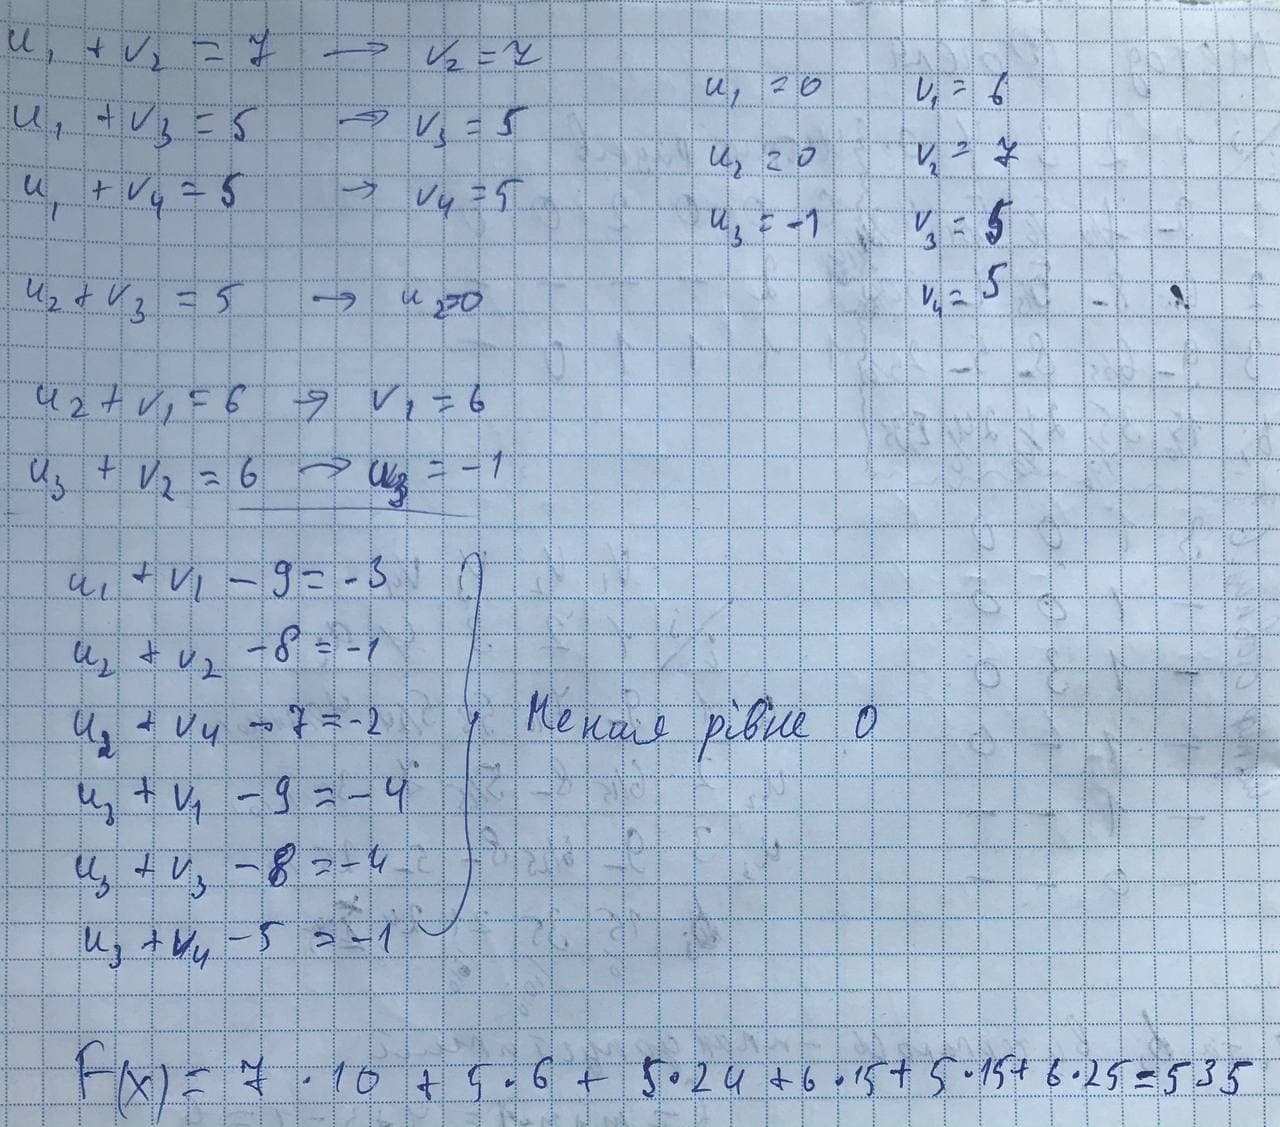 u₁ + v₂ = 7 → v₂ = 7
u₁ + v₃ = 5 → v₃ = 5
u₁ + v₄ = 5 → v₄ = 5
u₂ + v₃ = 5 → u₂ = 0
u₂ + v₁ = 6 → v₁ = 6
u₃ + v₂ = 6 → u₃ = -1
u₁ = 0 v₁ = 6
u₂ = 0 v₂ = 7
u₃ = -1 v₃ = 5
v₄ = 5
u₁ + v₁ - 9 = -3
u₂ + v₂ - 8 = -1
u₂ + v₄ - 7 = -2
u₃ + v₁ - 9 = -4
u₃ + v₃ - 8 = -4
u₃ + v₄ - 5 = -1
Менше рівне 0
F(x) = 7 · 10 + 5 · 6 + 5 · 24 + 6 · 15 + 5 · 15 + 6 · 25 = 535